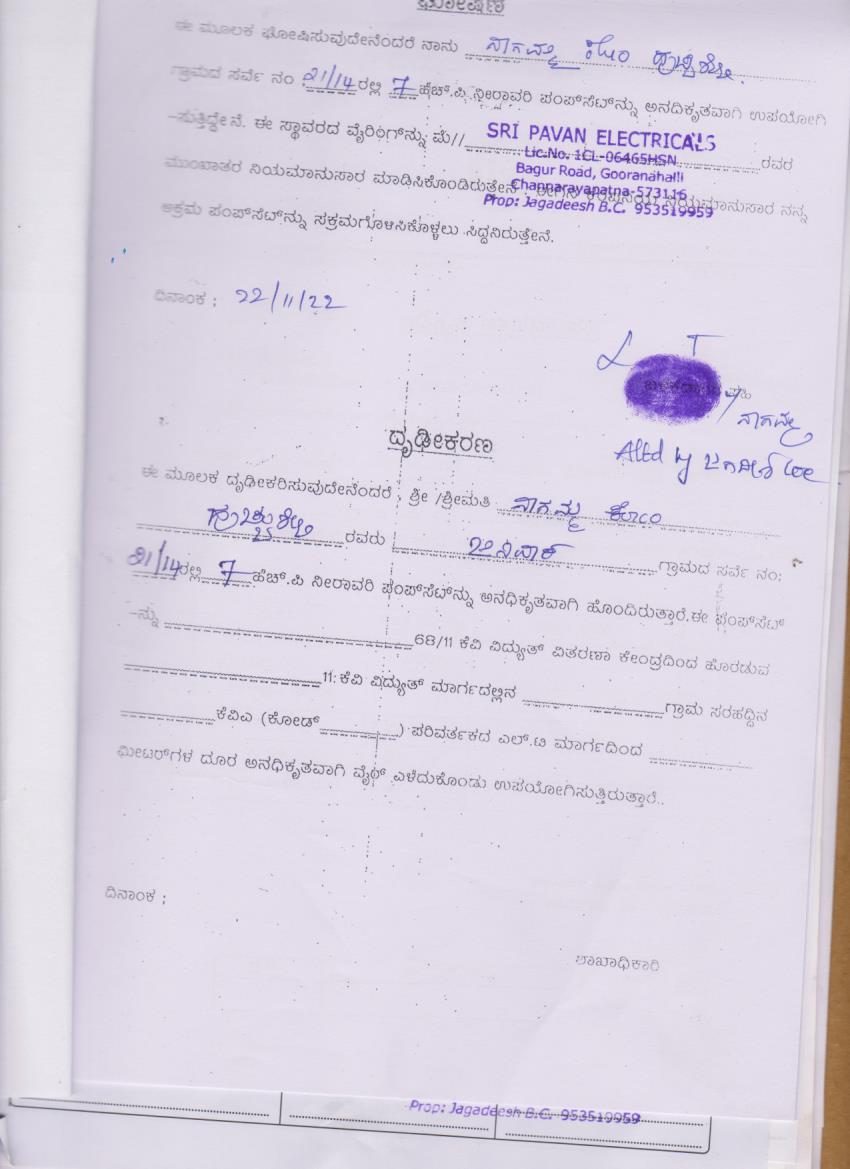 ಘೋಷಣೆ
ಈ ಮೂಲಕ ಘೋಷಿಸುವುದೇನೆಂದರೆ ನಾನು ನಾಗಮ್ಮ ಕೋಂ
ಗ್ರಾಮದ ಸರ್ವೆ ನಂ 21/14 ರಲ್ಲಿ 7 ಹೆಚ್.ಪಿ ನೀರಾವರಿ ಪಂಪ್‌ಸೆಟ್‌ನ್ನು ಅನದಿಕೃತವಾಗಿ ಉಪಯೋಗಿ
-ಸುತ್ತಿದ್ದೇನೆ. ಈ ಸ್ಥಾವರದ ವೈರಿಂಗ್‌ನ್ನು ಮೆ// ರವರ
SRI PAVAN ELECTRICALS
Lic.No. 1CL-06465HSN
Bagur Road, Gooranahalli
Channarayapatna-573116
Prop: Jagadeesh B.C. 953519959
ಮುಖಾಂತರ ನಿಯಮಾನುಸಾರ ಮಾಡಿಸಿಕೊಂಡಿರುತ್ತೇನೆ. ನಿಯಮಾನುಸಾರ ನನ್ನ
ಅಕ್ರಮ ಪಂಪ್‌ಸೆಟ್‌ನ್ನು ಸಕ್ರಮಗೊಳಿಸಿಕೊಳ್ಳಲು ಸಿದ್ದನಿರುತ್ತೇನೆ.
ದಿನಾಂಕ : 22/11/22
L T
ನಾಗಮ್ಮ
ದೃಢೀಕರಣ
ಈ ಮೂಲಕ ದೃಢೀಕರಿಸುವುದೇನೆಂದರೆ, ಶ್ರೀ /ಶ್ರೀಮತಿ ನಾಗಮ್ಮ ಕೋಂ
ರವರು ಗ್ರಾಮದ ಸರ್ವೆ ನಂ:
21/14 ರಲ್ಲಿ 7 ಹೆಚ್.ಪಿ ನೀರಾವರಿ ಪಂಪ್‌ಸೆಟ್‌ನ್ನು ಅನಧಿಕೃತವಾಗಿ ಹೊಂದಿರುತ್ತಾರೆ. ಈ ಪಂಪ್‌ಸೆಟ್
-ನ್ನು 68/11 ಕೆವಿ ವಿದ್ಯುತ್ ವಿತರಣಾ ಕೇಂದ್ರದಿಂದ ಹೊರಡುವ
11 ಕೆವಿ ವಿದ್ಯುತ್ ಮಾರ್ಗದಲ್ಲಿನ ಗ್ರಾಮ ಸರಹದ್ದಿನ
ಕೆವಿಎ (ಕೋಡ್ ) ಪರಿವರ್ತಕದ ಎಲ್.ಟಿ ಮಾರ್ಗದಿಂದ
ಮೀಟರ್‌ಗಳ ದೂರ ಅನಧಿಕೃತವಾಗಿ ವೈರ್ ಎಳೆದುಕೊಂಡು ಉಪಯೋಗಿಸುತ್ತಿರುತ್ತಾರೆ..
ದಿನಾಂಕ :
ಶಾಖಾಧಿಕಾರಿ
Prop: Jagadeesh B.C. 953519959